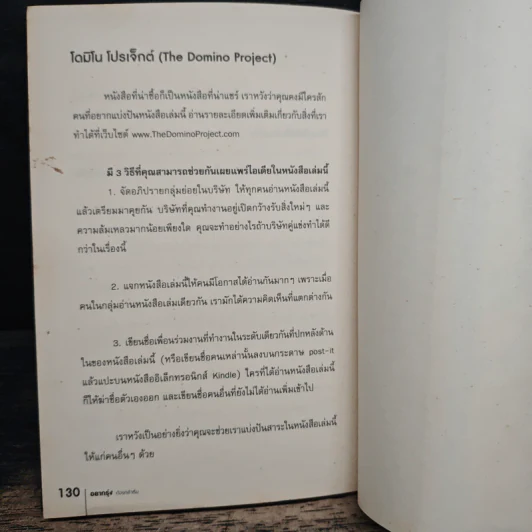 โดมิโน โปรเจ็กต์ (The Domino Project)
หนังสือที่น่าซื้อก็เป็นหนังสือที่น่าแชร์ เราหวังว่าคุณคงมีใครสัก
คนที่อยากแบ่งปันหนังสือเล่มนี้ อ่านรายละเอียดเพิ่มเติมเกี่ยวกับสิ่งที่เรา
ทำได้ที่เว็บไซต์ www.TheDominoProject.com
มี 3 วิธีที่คุณสามารถช่วยกันเผยแพร่ไอเดียในหนังสือเล่มนี้
1. จัดอภิปรายกลุ่มย่อยในบริษัท ให้ทุกคนอ่านหนังสือเล่มนี้
แล้วเตรียมมาคุยกัน บริษัทที่คุณทำงานอยู่เปิดกว้างรับสิ่งใหม่ๆ และ
ความล้มเหลวมากน้อยเพียงใด คุณจะทำอย่างไรถ้าบริษัทคู่แข่งทำได้ดี
กว่าในเรื่องนี้
2. แจกหนังสือเล่มนี้ให้คนมีโอกาสได้อ่านกันมากๆ เพราะเมื่อ
คนในกลุ่มอ่านหนังสือเล่มเดียวกัน เรามักได้ความคิดเห็นที่แตกต่างกัน
3. เขียนชื่อเพื่อนร่วมงานที่ทำงานในระดับเดียวกันที่ปกหลังด้าน
ในของหนังสือเล่มนี้ (หรือเขียนชื่อคนเหล่านั้นลงบนกระดาษ post-it
แล้วแปะบนหนังสืออิเล็กทรอนิกส์ Kindle) ใครที่ได้อ่านหนังสือเล่มนี้
ก็ให้ฆ่าชื่อตัวเองออก และเขียนชื่อคนอื่นที่ยังไม่ได้อ่านเพิ่มเข้าไป
เราหวังเป็นอย่างยิ่งว่าคุณจะช่วยเราแบ่งปันสาระในหนังสือเล่มนี้
ให้แก่คนอื่นๆ ด้วย
130 อยากรุ่ง